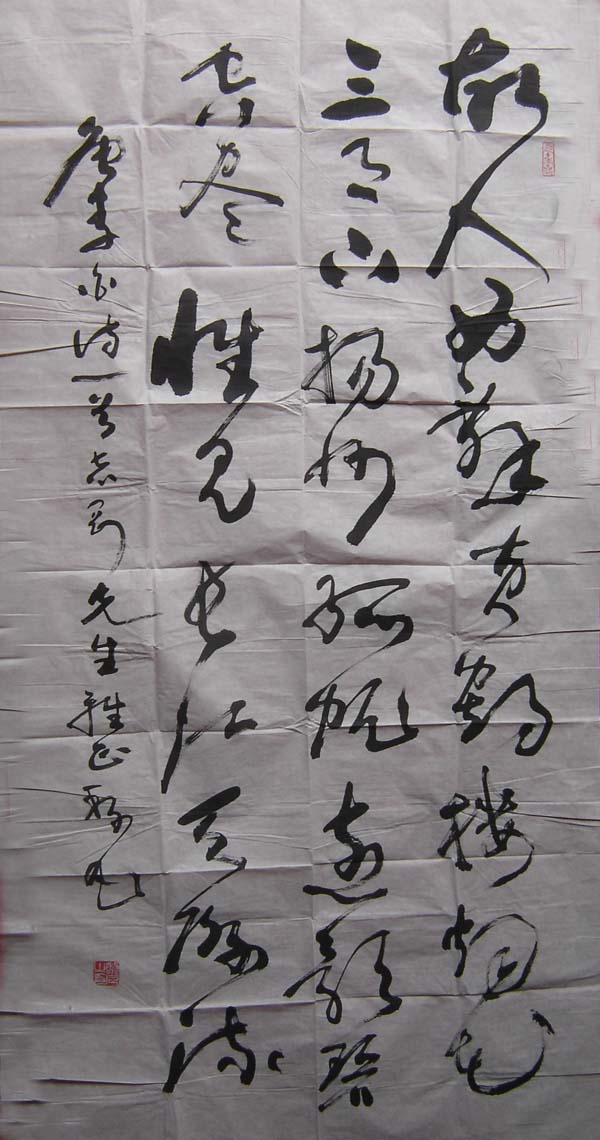 故人西辞黄鹤楼烟花
三月下扬州孤帆远影碧
空尽惟见长江天际流
唐李白诗一首志刚先生雅正